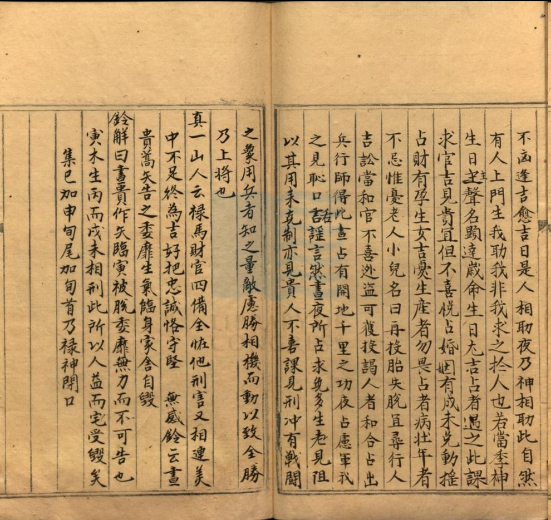 不凶逢吉愈吉日是人相助夜乃神相助此自然
有人上門主我助我非我求之於人也若當季神
生日主聲名顯達歲命生日尤吉占者遇之此課
求官吉見貴宜但不喜悅占婚姻有成未免動搖
占財有孕生女吉憂生產者勿畏占者病壮年者
不忌惟憂老人小兒名曰再投胎失脫宜尋行人
吉訟當和官不喜逃盜可獲投謁人者和合占出
兵行師得此晝占有開地千里之功夜占慮軍我
之見恥口舌謠言然晝夜所占求免多生老見阻
以其用来克制亦見貴人不喜課見刑冲有戰鬪
之象用兵者知之量敵慮勝相機而動以致全勝
乃上将也
真一山人云禄馬財官四備全怔他刑害又相連美
中不足終為吉好把忠誠恪守堅 無惑鈐云晝
貴蒿矢告之委靡生氣臨身家舍自毀
鈐解曰晝貴作矢臨寅被脫委靡無力而不可告也
寅木生丙而戌未相刑此所以人益而宅受毀矣
集巳加申旬尾加旬首乃禄神閉口